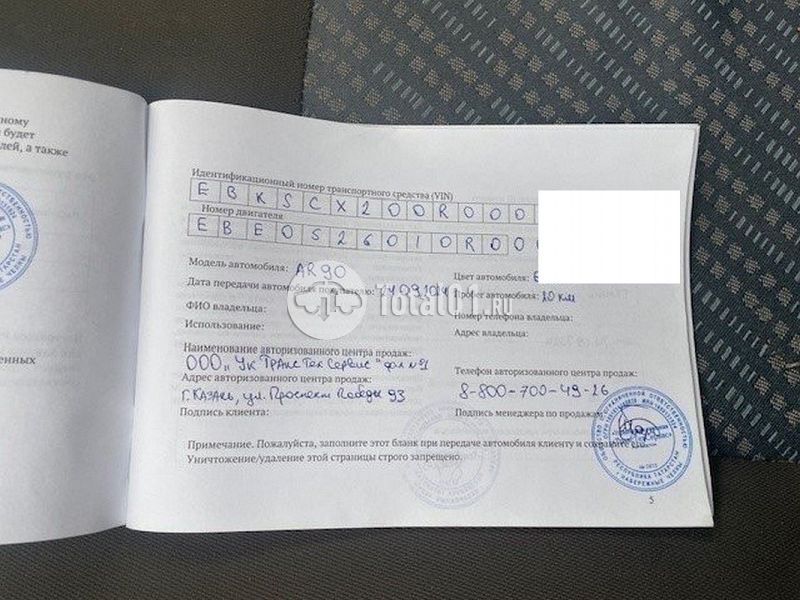 ному
будет
лей, а также
енных
Идентификационный номер транспортного средства (VIN)
E B K S C X 2 0 0 R 0 0 0
Номер двигателя
E B E 0 5 2 6 0 1 0 R 0 0
Модель автомобиля: AR90
Цвет автомобиля:
Дата передачи автомобиля покупателю:
Пробег автомобиля: 20 км
ФИО владельца:
Номер телефона владельца:
Использование:
Адрес владельца:
total01.ru
Наименование авторизованного центра продаж:
ООО "УК ТрансТехСервис"
Телефон авторизованного центра продаж:
Адрес авторизованного центра продаж:
8-800-700-49-26
г. Казань, ул. Проспект Победы 93
Подпись клиента:
Подпись менеджера по продажам:
Примечание. Пожалуйста, заполните этот бланк при передаче автомобиля клиенту и сохраните его.
Уничтожение/удаление этой страницы строго запрещено.
РЕСПУБЛИКА ТАТАРСТАН
НАБЕРЕЖНЫЕ ЧЕЛНЫ
5